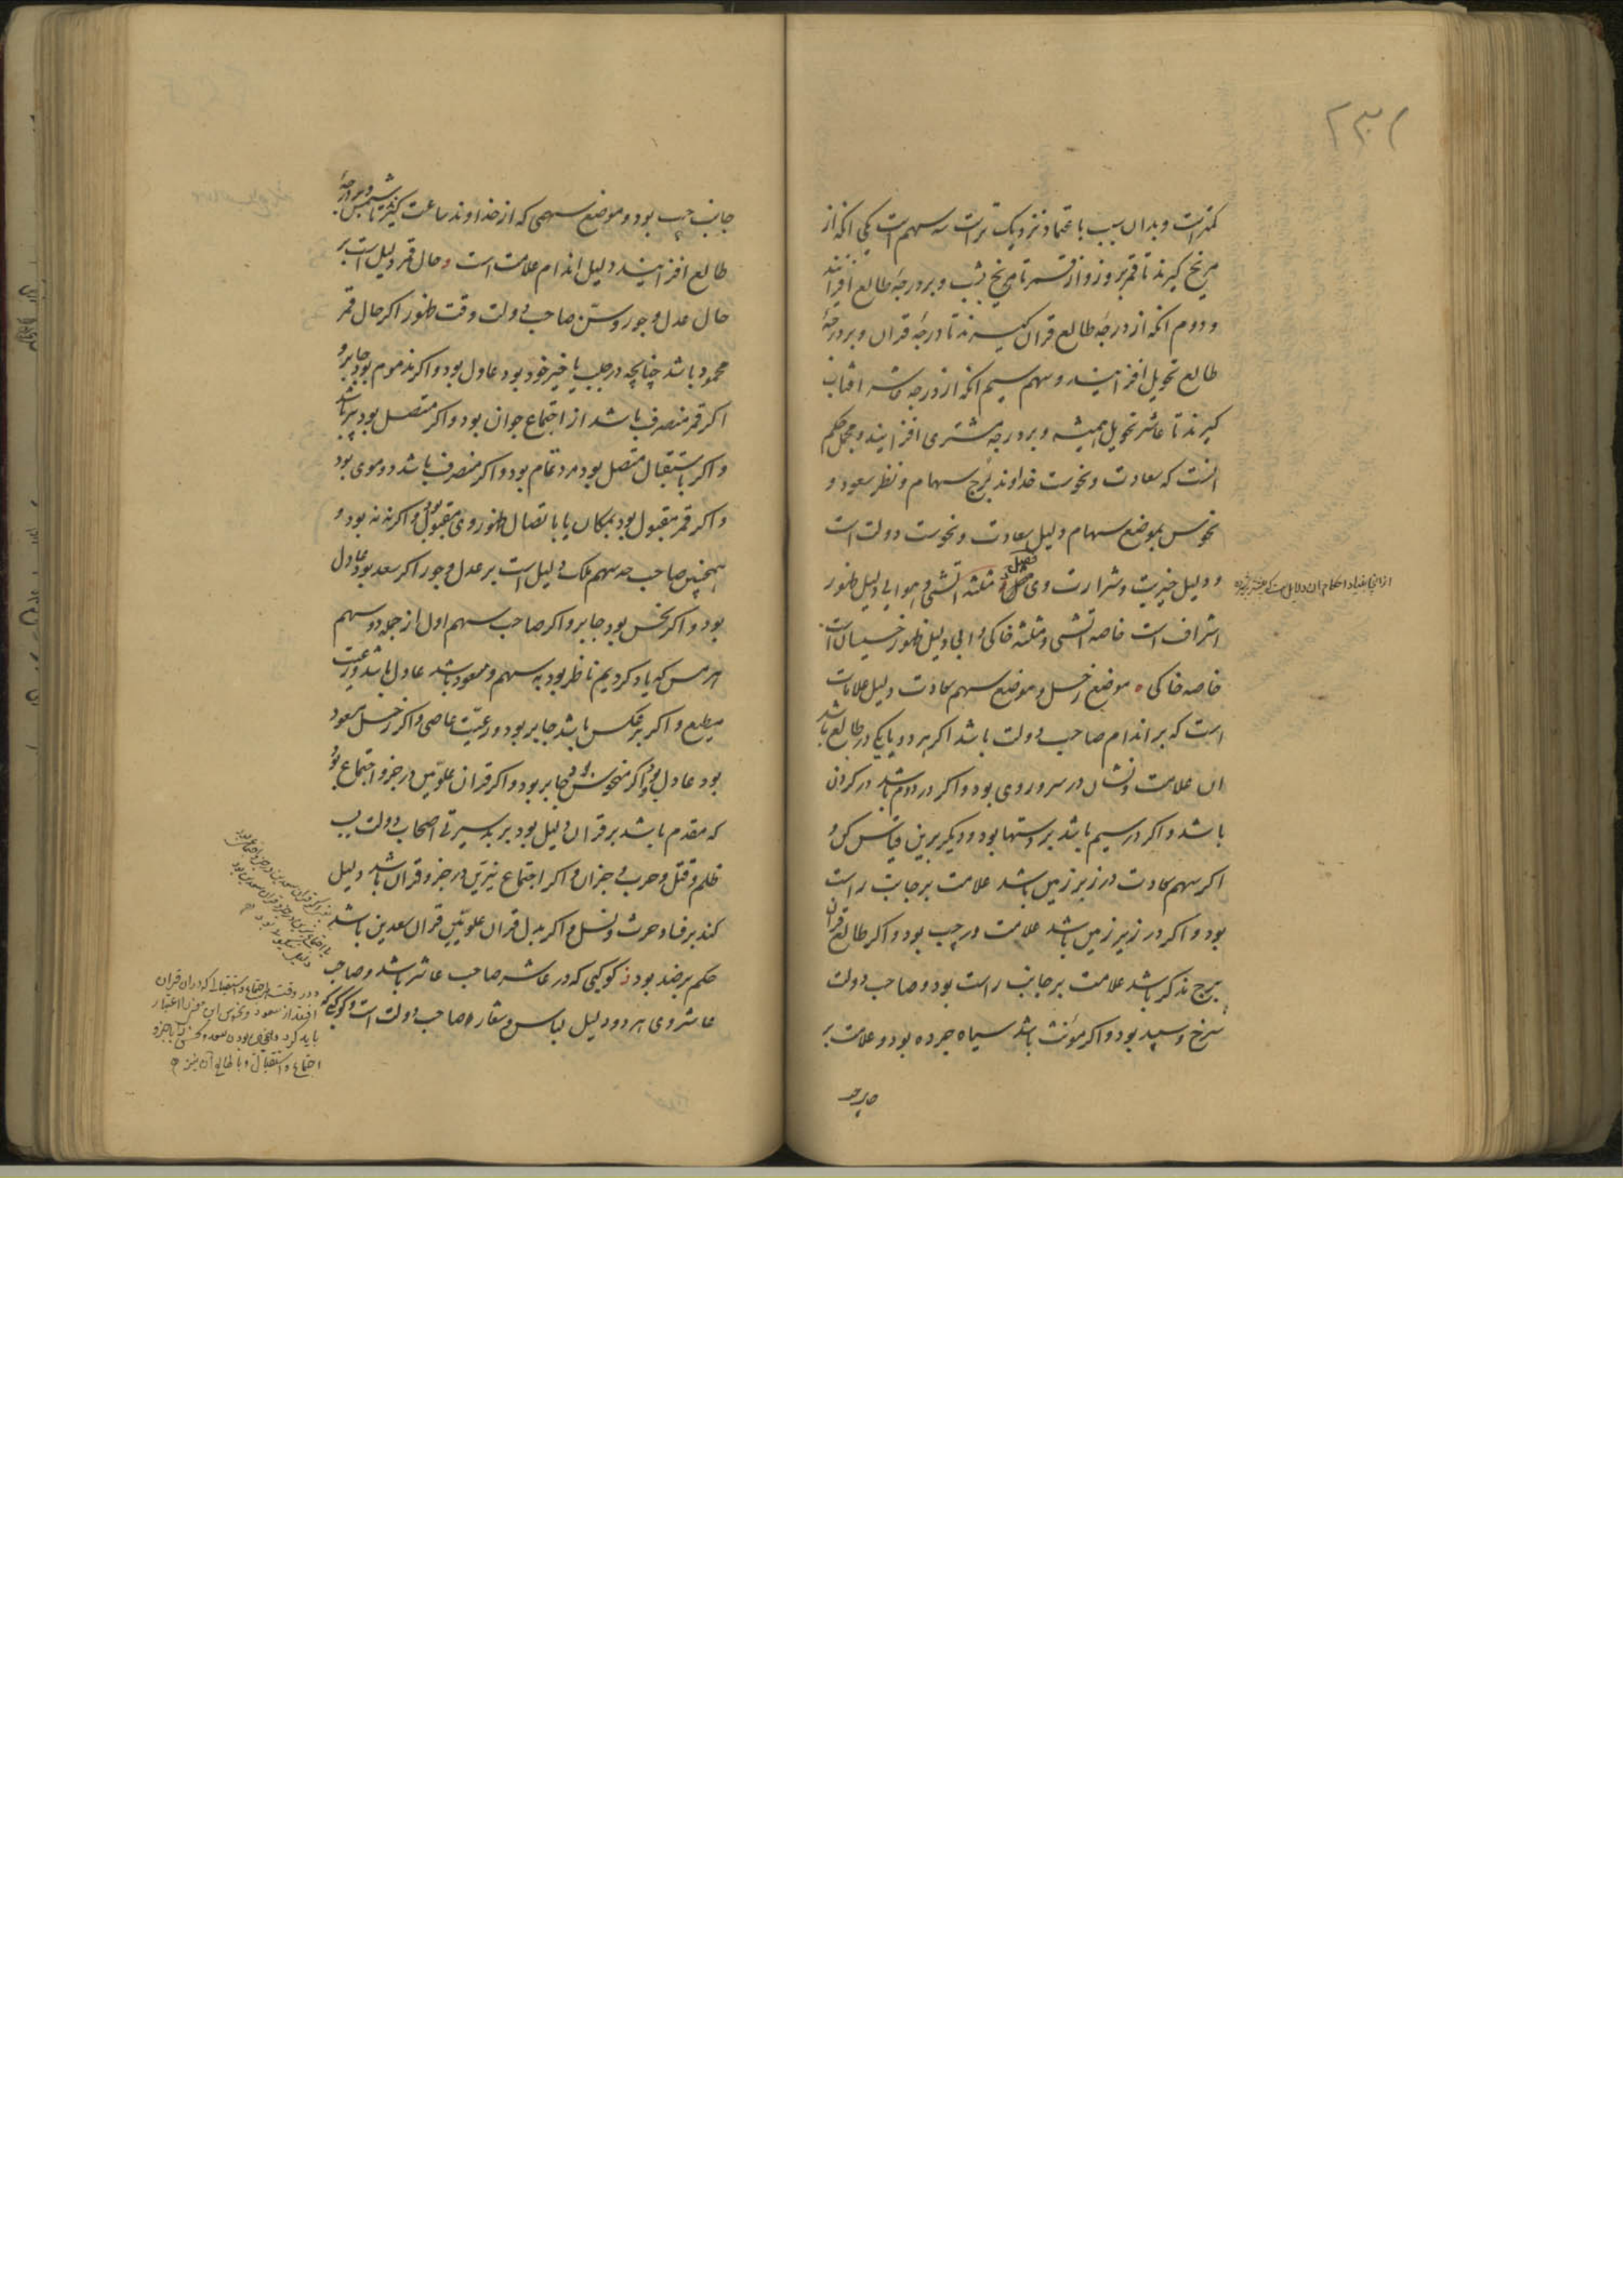 ۲۳۱
کمتراست و بدان سبب باعتماد نزدیک تراست سه سهم است یکی انکه از
مریخ کیرند تا قمر بروز و از قمر تا مریخ بشب و بر درجهٔ طالع افزایند
و دوم انکه از درجهٔ طالع قران کیرند تا درجهٔ قران و بر درجهٔ
طالع تحویل افزایند و سهم سیم انکه از درجه افتاب
کیرند تا عاشر تحویل همیشه و بر درجهٔ مشتری افزایند و مجمل حکم
انست که سعادت و نحوست خداوند برج سهام و نظر سعود و
نحوس بموضع سهام دلیل سعادت و نحوست دولت است
و دلیل خیریت و شرارت وی فصل و مثلثه اتشی و هوایی دلیل ظهور
اشراف است خاصه اتشی و مثلثه خاکی و ابی دلیل ظهور خسیسان است
خاصه خاکی ٥ موضع زحل و موضع سهم سعادت دلیل علامات
است که بر اندام صاحب دولت باشد اکر هر دو یا یکی در طالع باشد
ان علامت و نشان در سر و روی بود و اکر در دوم باشد در کردن
باشد و اکر در سیم باشد بر دستها بود و دیکر برین قیاس کن و
اکر سهم سعادت در زبر زمین باشد علامت بر جانب راست
بود و اکر در زیر زمین باشد علامت در چپ بود و اکر طالع قران
برج مذکر باشد علامت بر جانب راست بود و صاحب دولت
سرخ و سپید بود و اکر مؤنث باشد سیاه جرده بود و علامت بر
جانب چپ بود و موضع سهمی که از خداوند ساعت کیرند تا شمس و بر درجهٔ
طالع افزایند دلیل اندام علامت است و حال قمر دلیل است بر
حال عدل و جور و سن صاحب دولت وقت ظهور اکر حال قمر
محمود باشد چنانچه در حلب یا حیز خود بود عادل بود و اکر مذموم بود جابر و
اکر قمر منصرف باشد از اجتماع جوان بود و اکر متصل بود پیر باشد
و اکر باستقبال متصل بود مرد تمام بود و اکر منصرف باشد دوموی بود
و اکر قمر مقبول بود بمکان یا باتصال ظهور وی مقبول بود و اکر نه نه بود و
همچنین صاحب حد سهم ملک دلیل است بر عدل و جور اکر سعد بود عادل
بود و اکر نحس بود جابر و اکر صاحب سهم اول از جمله دو سهم
هرمس که یاد کردیم ناظر بود به سهم و مسعود باشد عادل باشد و رعیت
مطیع و اکر بر عکس باشد جابر بود و رعیت عاصی و اکر زحل مسعود
بود عادل بود و اکر منحوس بود جابر بود و اکر قران علویین در جزو اجتماع بود
که مقدم باشد بر قران دلیل بود بر بد سیرتی اصحاب دولت بسبب
ظلم و قتل و حرب و جز ان و اکر اجتماع نیرین در جزو قران باشد دلیل
کند بر فساد حرث و نسل و اکر بدل قران علویین قران سعدین باشد
حکم بر ضد بود و کوکبی که در عاشر صاحب عاشر باشد و صاحب
عاشر وی هر دو دلیل لباس و شعار صاحب دولت است و کوکبی که
و در وقت اجتماع و استقبال که در ان قران
افتد از سعود و نحوس این معنی را اعتبار
باید کرد
اجتماع و استقبال و با طالع آن نیز